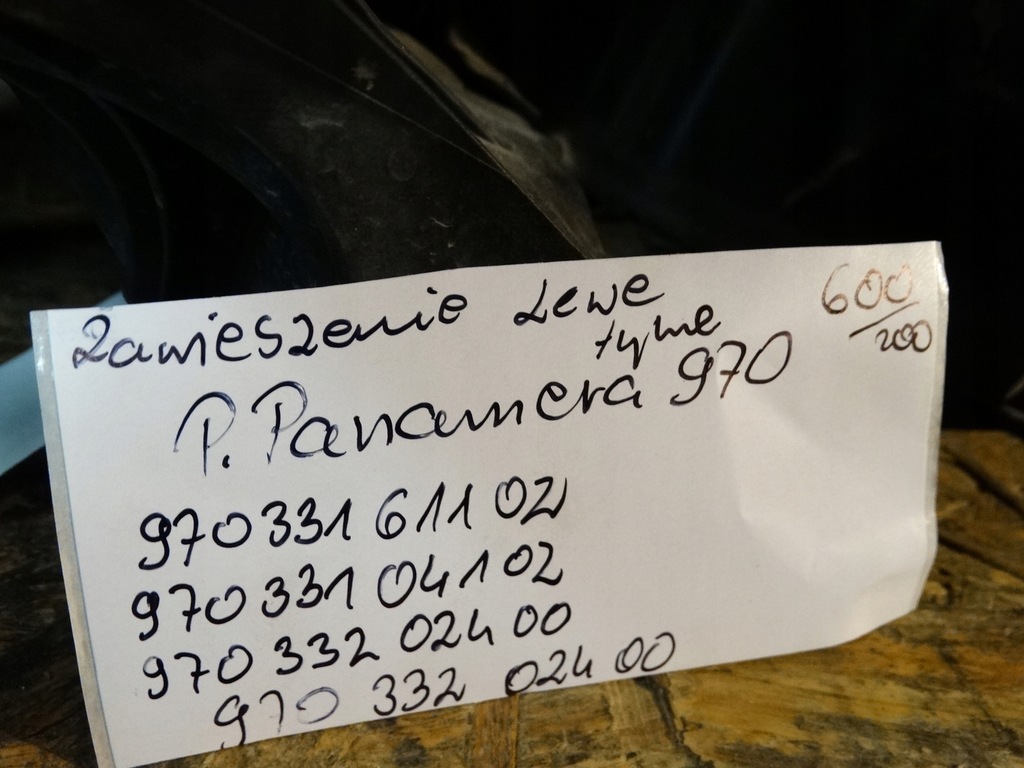 Zawieszenie Lewe
tylne
600/200
P. Panamera 970
970 331 611 02
970 331 041 02
970 332 024 00
970 332 024 00